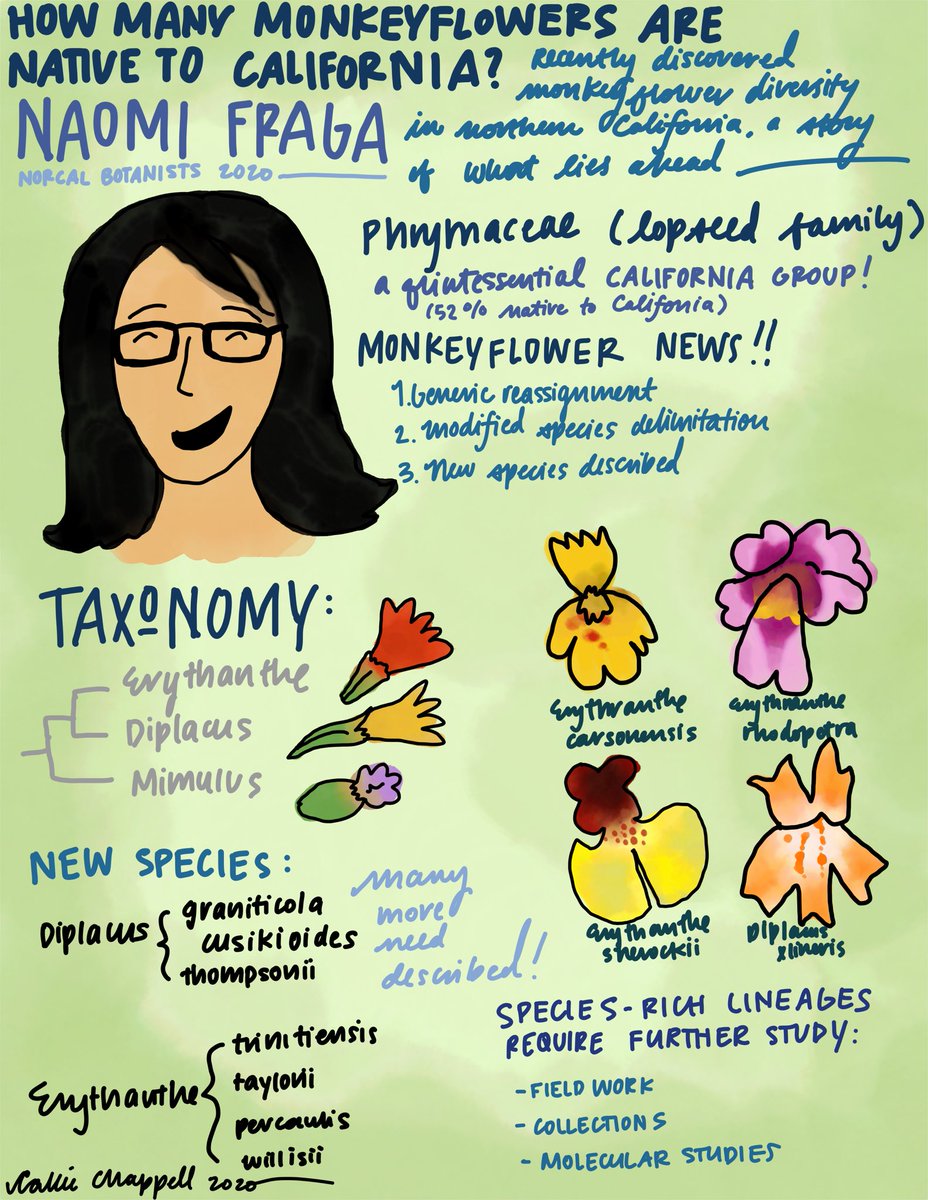 HOW MANY MONKEYFLOWERS ARE
NATIVE TO CALIFORNIA?
NAOMI FRAGA
NORCAL BOTANISTS 2020
Recently discovered
monkeyflower diversity
in northern California, a story
of what lies ahead
Phrymaceae (lopseed family)
a quintessential CALIFORNIA GROUP!
(52% native to California)
MONKEYFLOWER NEWS!!
1. Generic reassignment
2. Modified species delimitation
3. New species described
TAXONOMY:
Erythanthe
Diplacus
Mimulus
Erythranthe
carsonensis
Erythranthe
rhodopetra
Erythanthe
sherockii
Diplacus
xlineris
NEW SPECIES:
Diplacus
graniticola
cusikioides
thompsonii
many
more
need
described!
Erythanthe
trinitiensis
taylorii
percaulis
willisii
SPECIES-RICH LINEAGES
REQUIRE FURTHER STUDY:
- FIELD WORK
- COLLECTIONS
- MOLECULAR STUDIES
Callie Chappell 2020